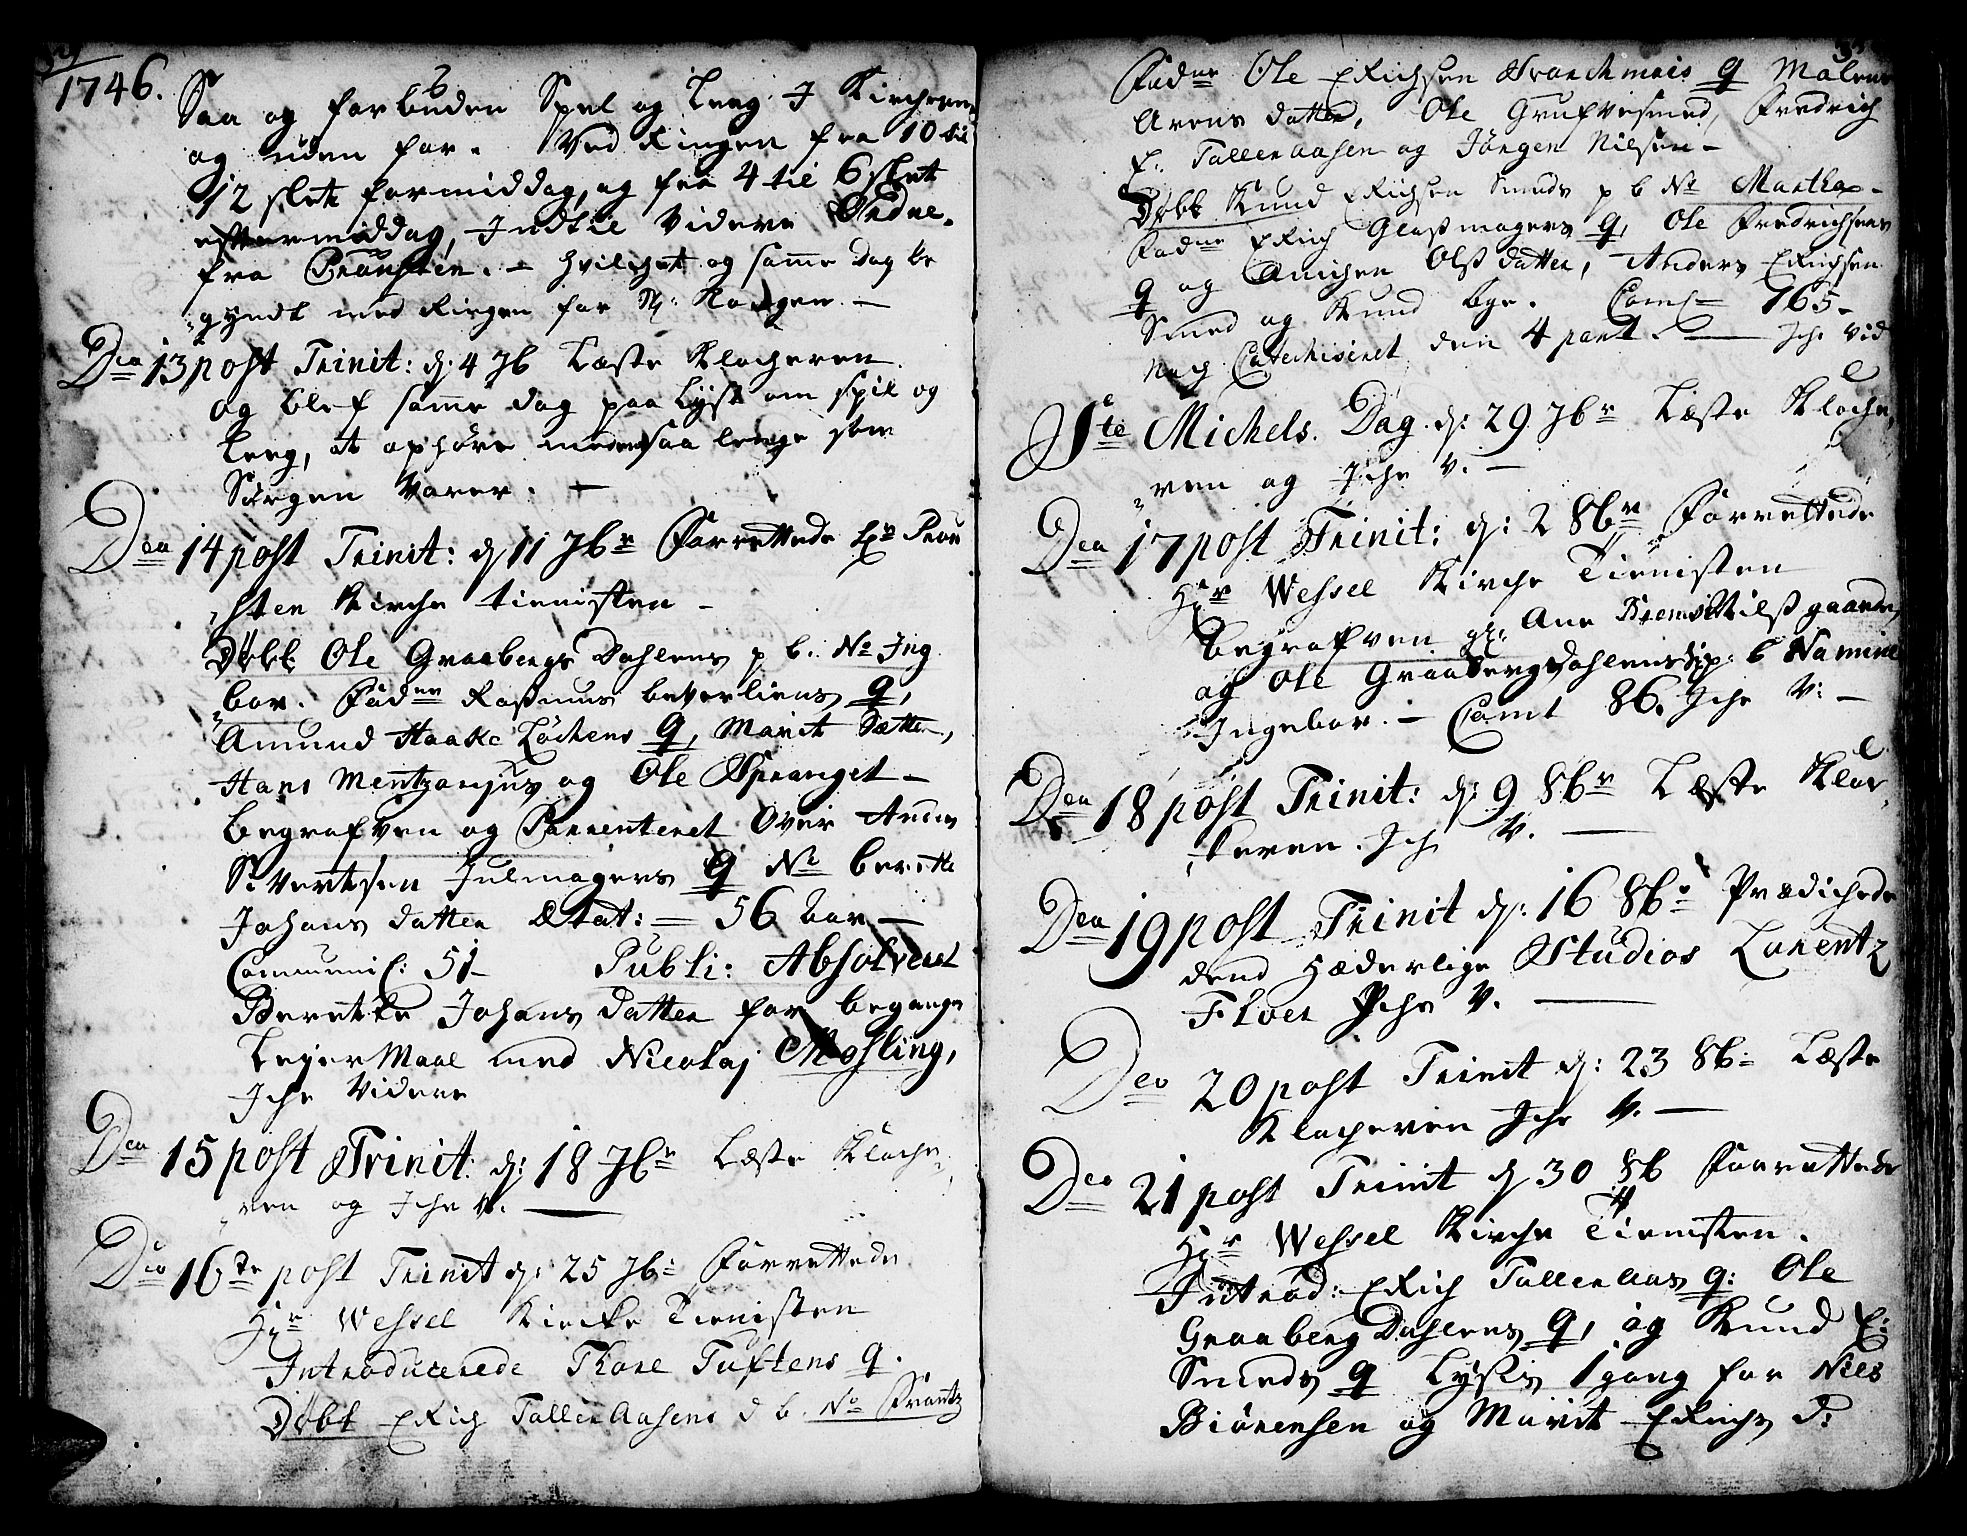 1746.
Saa og forbuden Spel og Leeg I Kirchen
og uden for. Ved Ringen fra 10 til
12 slet formiddag, og fra 4 til 6 slet
eftermiddag, Indtil Videre Ordre
fra Provsten. — hvilchet og samme Dag be
gyndt med Ringen for
Den 13 post Trinit: d: 4 7b Læste Klocheren
og blef samme dag paa Lyst om spil og
Leeg, at ophøre saa lenge som
Sorgen Varer. —
Den 14 post Trinit: d 11 7br Forrettede Hr Prov
sten Kirche tienisten —
Døbt Ole Graabergs Dahlens p b. No Ing
bor. Fadne Rasmus beverliens q,
Amund Haake Løchens q, Marit Sætte,
Hans Mentzonius og Ole Spranget —
Begrafven og Parenteret Over Anders
Sivertsen Julmagers q No berette
Johans datter Ætat: = 56 aar —
Communic: 51 — Publi: Absolveret
Berette Johans Datter for begangne
Leyer Maal med Nicolaj Mosling,
Iche Videre
Den 15 post Trinit: d: 18 7br Læste Kloche
ren og Iche V. —
Den 16te post Trinit d: 25 7b: Forrettede
Hr Wessel Kircke Tienisten
Introducerede Thore Tuftens q.
Døbt Erich Tallenaasens d b. No Frantz
Fadne Ole Erichsen q Malene
Arens datter, Ole Grufvesmed, Fredrich
E. Tallenaasen og Jørgen Nilsen —
Døbt Knud Erichsen Smeds p b No Martha —
Fadne Erich Glasmagers q, Ole Fredrichsens
q og Anichen Ols datter, Anders Erichsen
Smed og Knud Com 165 —
Nach Catechiseret den 4 part. — Iche Vid
Ste Michels Dag d: 29 7br Læste Kloche
ren og Iche V. —
Den 17 post Trinit: d: 2 8br Forrettede
Hr Wessel Kirche Tienisten
Begrafven Ane gaarden
og Ole Graabergsdahlens p: b Namine
Ingebor. — Comt 86. Iche V: —
Den 18 post Trinit: d: 9 8br Læste Kloc
keren. Ich V. —
Den 19 post Trinit d: 16 8br Prædichede
dend Hæderlige Studios Lorentz
Floer Iche V. —
Den 20 post Trinit d: 23 8b: Læste
Klocheren Iche V. —
Den 21 post Trinit d 30 8b Forrettede
Hr Wessel Kirche Tienisten.
Introd: Erich Tallenaas q: Ole
Graaberg Dahlens q, og Knud E:
Smeds q Lysis 1 gang for Niels
Biørensen og Marit Erichs d: